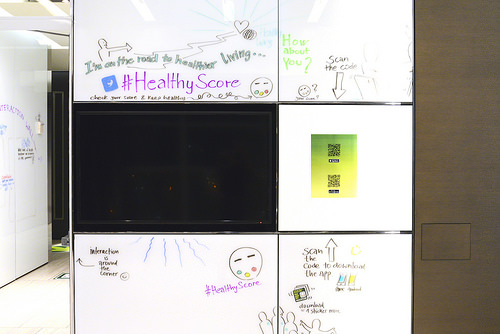 I'm on the road to healthier living...
#HealthyScore
check your score & keep healthy
How
about
You?
Scan
the code
?
Interaction
is
around
the
corner
#HealthyScore
Scan
the
code to download
the app
download
a sticker